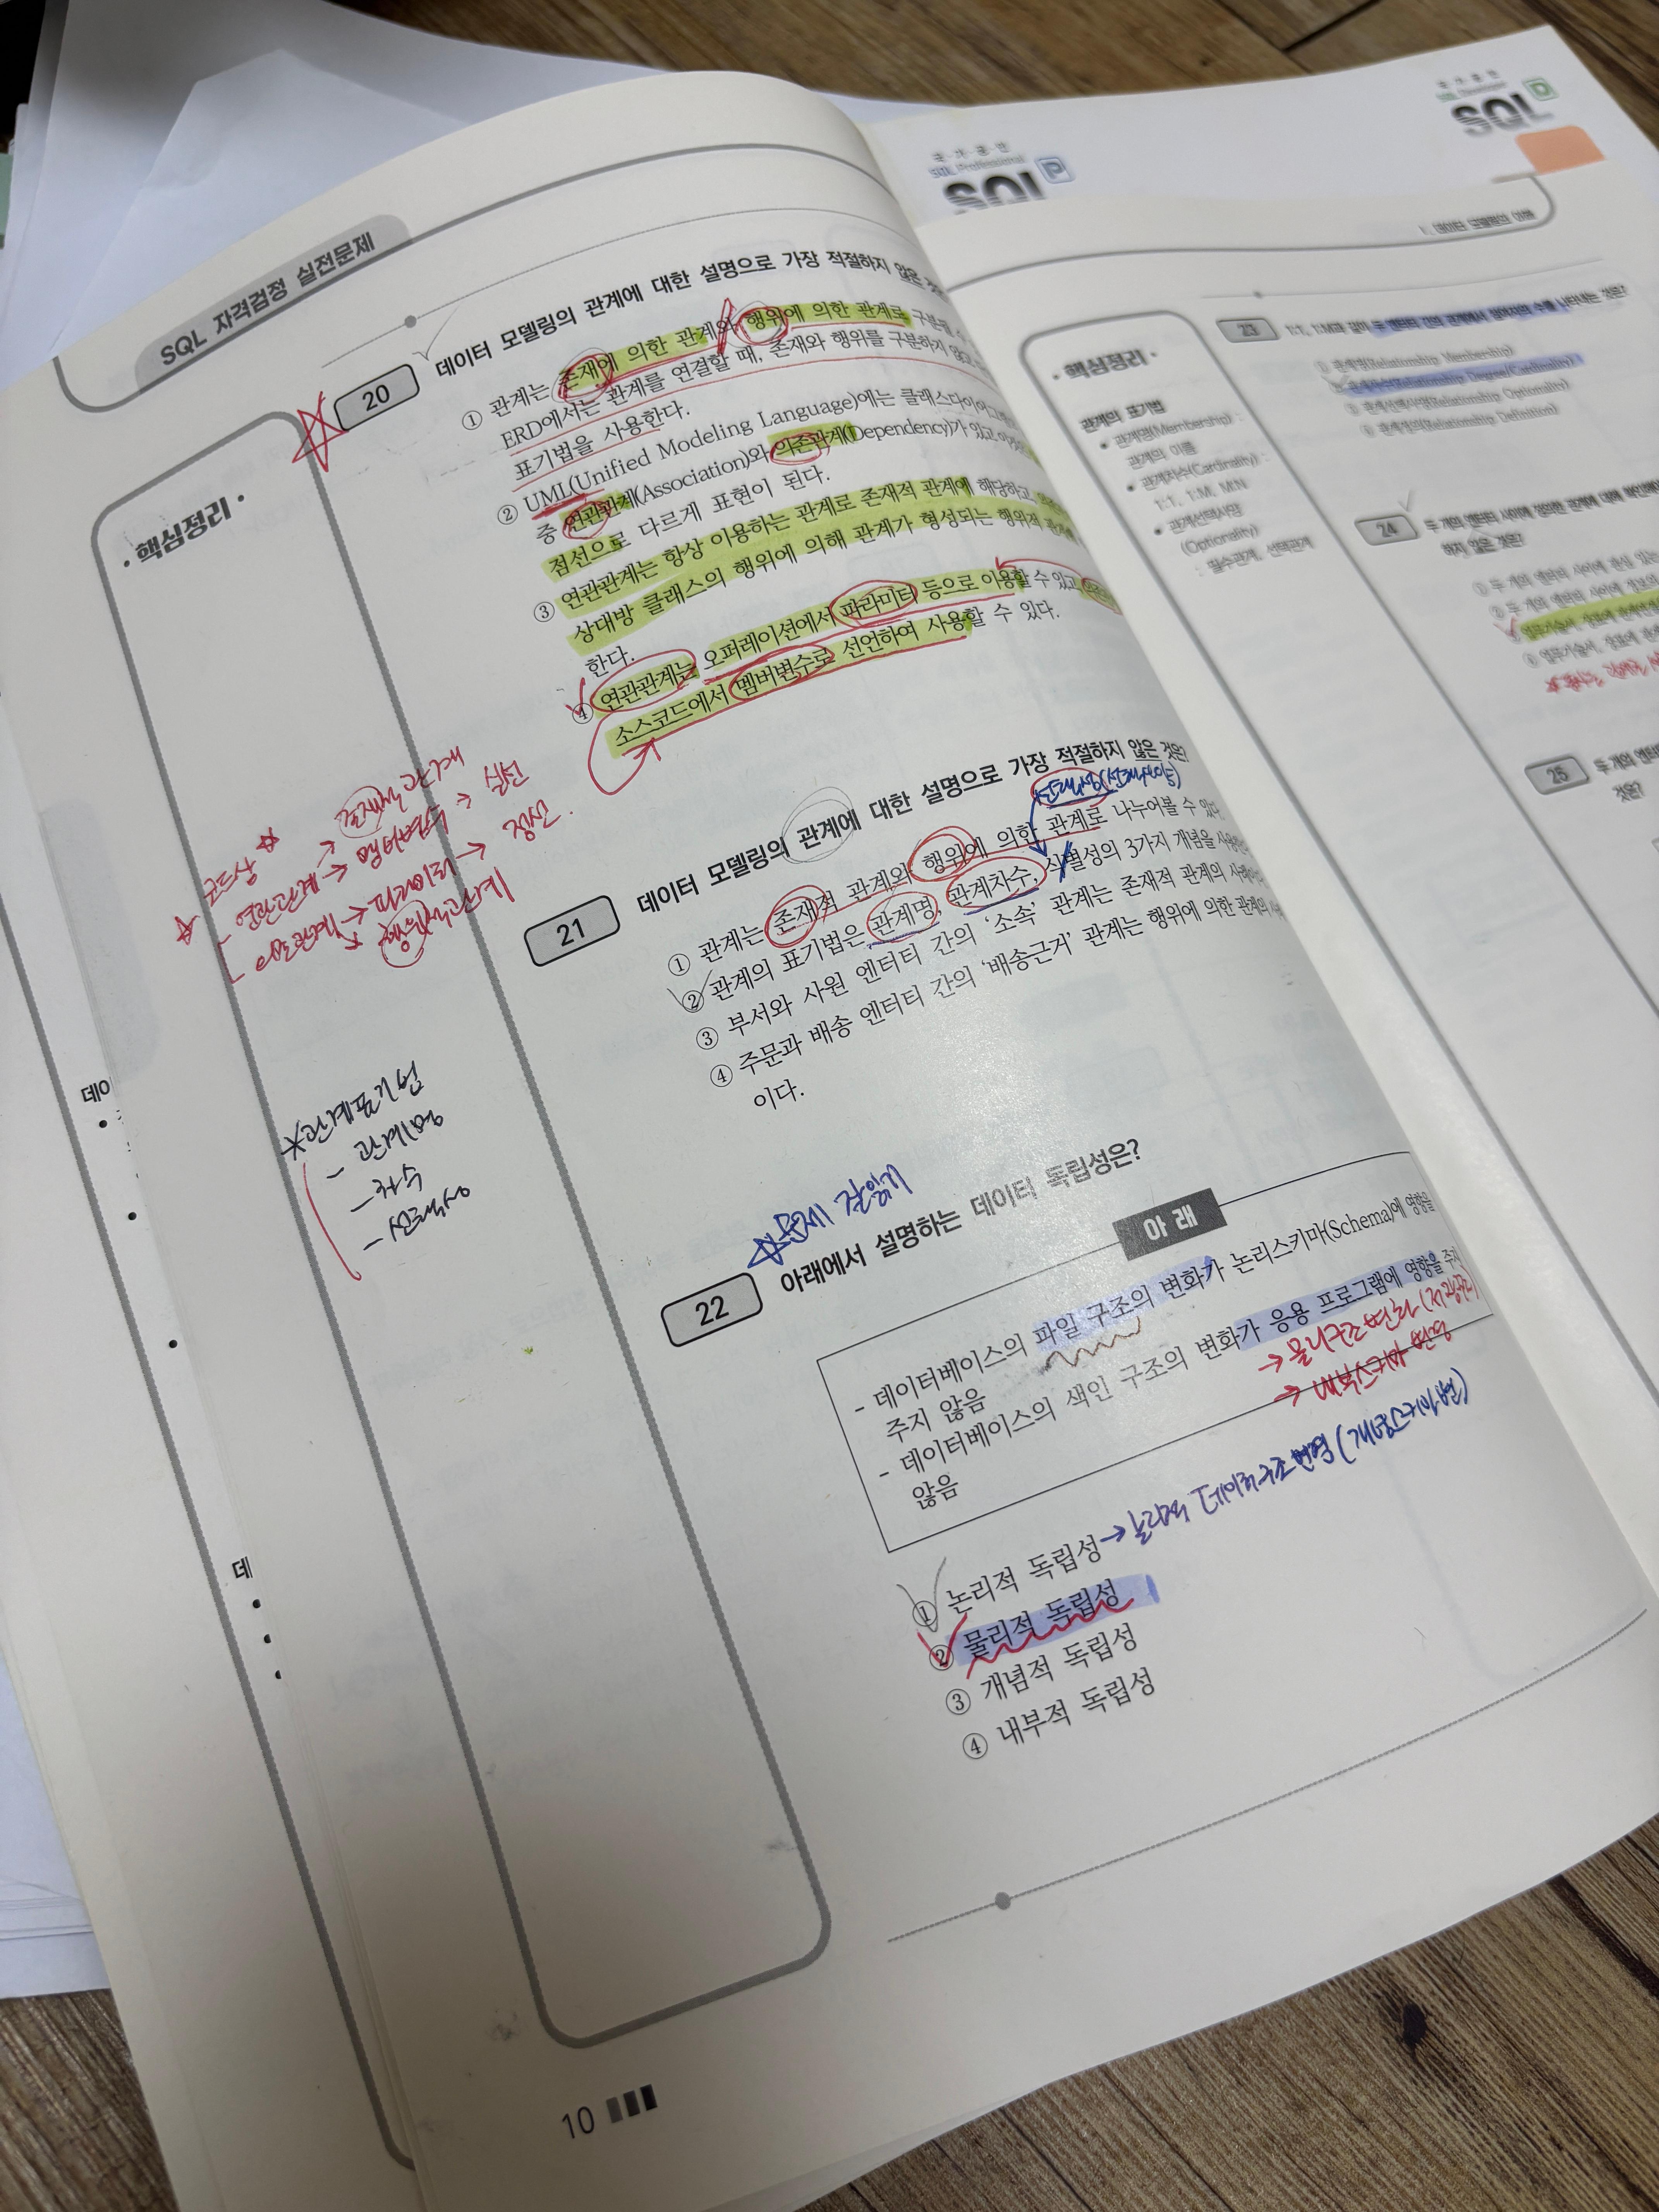 SQL 자격검정 실전문제
• 핵심정리 •
20 데이터 모델링의 관계에 대한 설명으로 가장 적절하지 않은
① 관계는 존재에 의한 관계와 행위에 의한 관계로 구분될 수
ERD에서는 관계를 연결할 때, 존재와 행위를 구분하지 않고
표기법을 사용한다.
② UML(Unified Modeling Language)에는 클래스다이어그램
중 연관관계(Association)와 의존관계(Dependency)가 있고
점선으로 다르게 표현이 된다.
③ 연관관계는 항상 이용하는 관계로 존재적 관계에 해당하고
상대방 클래스의 행위에 의해 관계가 형성되는 행위적 관계
한다.
④ 연관관계는 오퍼레이션에서 파라미터 등으로 이용할 수 있고
소스코드에서 멤버변수로 선언하여 사용할 수 있다.
☆ 코드상 ☆
존재적 관계
연관관계 → 멤버변수 → 실선
의존관계 → 파라미터 → 점선
행위적 관계
21 데이터 모델링의 관계에 대한 설명으로 가장 적절하지 않은 것은?
선택성(선택사양)
① 관계는 존재적 관계와 행위에 의한 관계로 나누어볼 수 있다
② 관계의 표기법은 관계명, 관계차수, 식별성의 3가지 개념을
③ 부서와 사원 엔터티 간의 '소속' 관계는 존재적 관계의 사례
④ 주문과 배송 엔터티 간의 '배송근거' 관계는 행위에 의한 관계의
이다.
관계표기법
- 관계명
- 차수
- 선택사양
☆문제 잘읽기
22 아래에서 설명하는 데이터 독립성은?
아 래
- 데이터베이스의 파일 구조의 변화가 논리스키마(Schema)에 영향을
주지 않음
- 데이터베이스의 색인 구조의 변화가 응용 프로그램에 영향을 주지
않음
→ 물리구조변화
→ 내부스키마 변경
① 논리적 독립성 → 논리적 데이터구조변경 (개념스키마변
② 물리적 독립성
③ 개념적 독립성
④ 내부적 독립성
10
국가공인
SQL Professional
SQL P
국가공인
SQL D
1. 데이터 모델링의 이해
• 핵심정리 •
관계의 표기법
• 관계명(Membership) :
관계의 이름
• 관계차수(Cardinality) :
1:1, 1:M, M:N
• 관계선택사양
(Optionality) :
필수관계, 선택관계
23 1:1, 1:M과 같이 두 엔터티 간의 관계에서 참여자의 수를 나타내는 것은?
① 관계명(Relationship Membership)
② 관계차수(Relationship Degree/Cardinality)
③ 관계선택사양(Relationship Optionality)
④ 관계정의(Relationship Definition)
24 두 개의 엔터티 사이에 정의한 관계에 대해
하지 않은 것은?
① 두 개의 엔터티 사이에 관심 있는
② 두 개의 엔터티 사이에 정보의
③ 업무기술서, 장표에 관계연결
④ 업무기술서, 장표에
25 두 개의 엔터티
것은?
데이
데